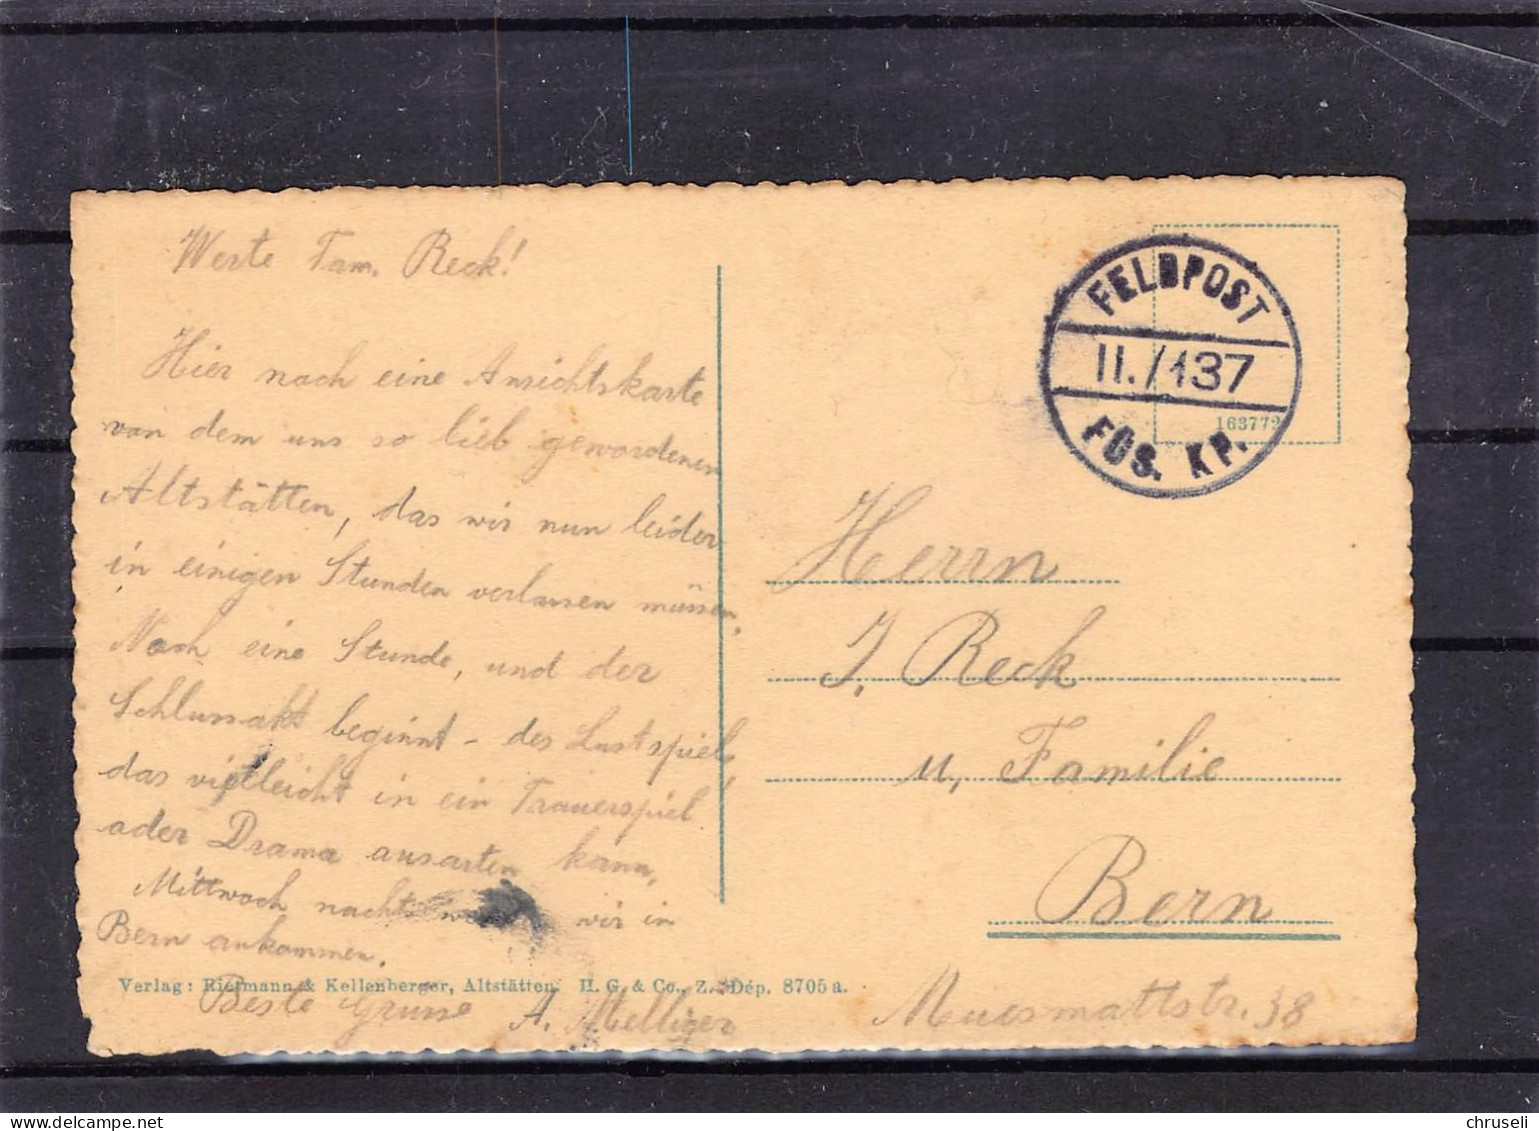 Werte Fam. Reck!
Hier noch eine Ansichtskarte
von dem uns so lieb gewordenen
Altstätten, das wir nun leider
in einigen Stunden verlassen müssen.
Noch eine Stunde, und der
Schlussakt beginnt - des Lustspiels,
das vielleicht in ein Trauerspiel
oder Drama ausarten kann.
Mittwoch nachts werden wir in
Bern ankommen.
Beste Grüsse A. Melliger
Verlag: Rietmann & Kellenberger, Altstätten. H. G. & Co., Z. Dép. 8705 a.
FELDPOST
II./137
FÜS. KP.
163772
Herrn
J. Reck
u. Familie
Bern
Muesmattstr. 38
chruseli